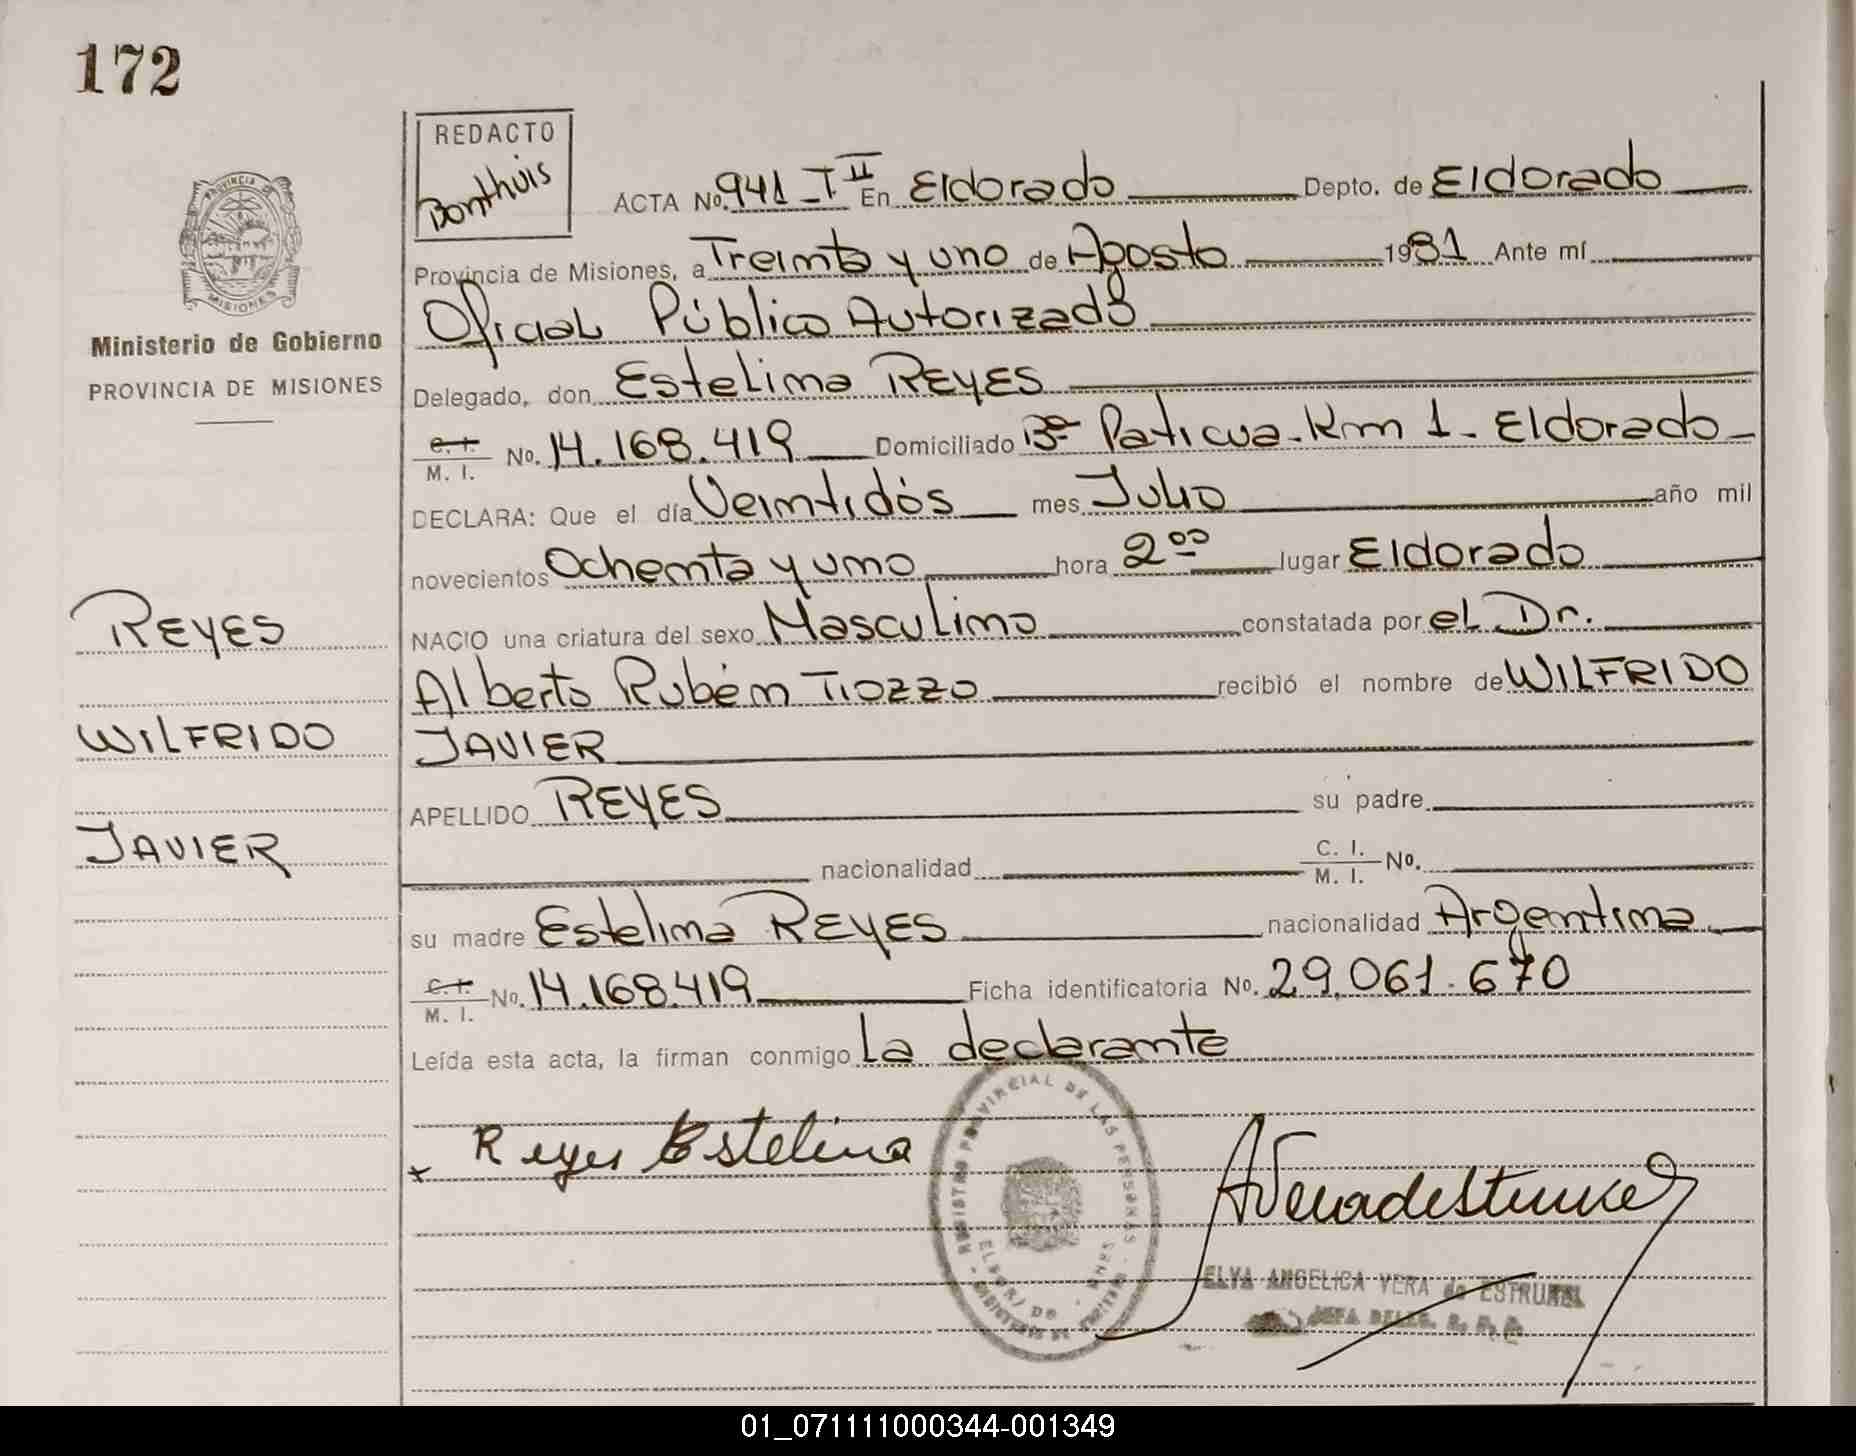 172
REDACTO
Bonthuis
ACTA No. 941-T II En Eldorado Depto. de Eldorado
Provincia de Misiones, a Treinta y uno de Agosto 1981 Ante mí
Oficial Público Autorizado
Delegado, don Estelina REYES
C. I. / M. I. No. 14.168.419 Domiciliado Bº Paticua-Km 1- Eldorado
DECLARA: Que el día Veintidós mes Julio año mil
novecientos Ochenta y uno hora 2 00 lugar Eldorado
NACIO una criatura del sexo Masculino constatada por el Dr.
Alberto Rubén Tiozzo recibió el nombre de WILFRIDO
JAVIER
APELLIDO REYES su padre
nacionalidad C. I. / M. I. No.
su madre Estelina REYES nacionalidad Argentina
C. I. / M. I. No. 14.168.419 Ficha identificatoria No. 29.061.670
Leída esta acta, la firman conmigo La declarante
x Reyes Estelina
PROVINCIA DE
MISIONES
Ministerio de Gobierno
PROVINCIA DE MISIONES
REYES
WILFRIDO
JAVIER
REGISTRO PROVINCIAL DE LAS PERSONAS
ELVA ANGELICA VERA de ESTRUMEL
JEFA DELEG. R. P. P.
01_071111000344-001349